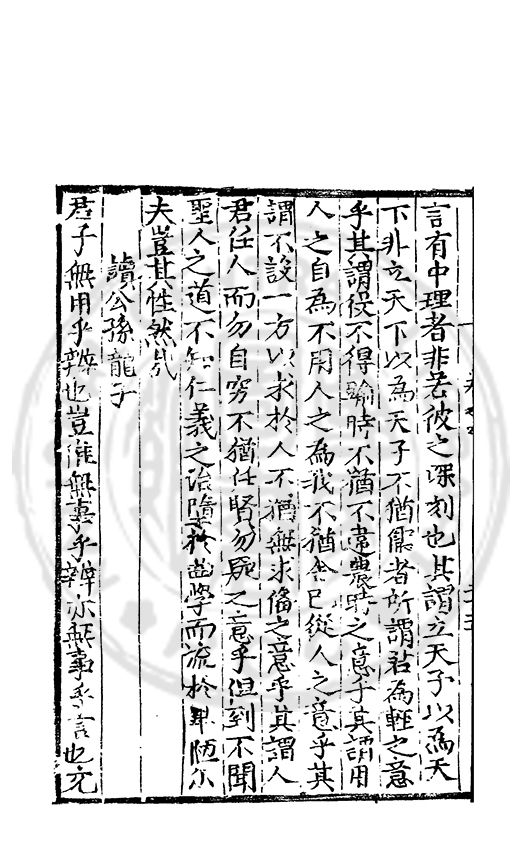 言有中理者非若彼之深刻也其謂立天子以為天
下非立天下以為天子不猶儒者所謂君為輕之意
乎其謂役不得踰時不猶不違農時之意乎其謂用
人之自為不用人之為我不猶舍己從人之意乎其
謂不設一方以求於人不猶無求備之意乎其謂人
君任人而勿自穷不猶任賢勿疑之意乎但到不聞
聖人之道不知仁義之治墮於曲學而流於卑陋尔
夫豈其性然㢤
讀公孫龍子
君子無用乎辨也豈惟無事乎辨亦無事乎言也充